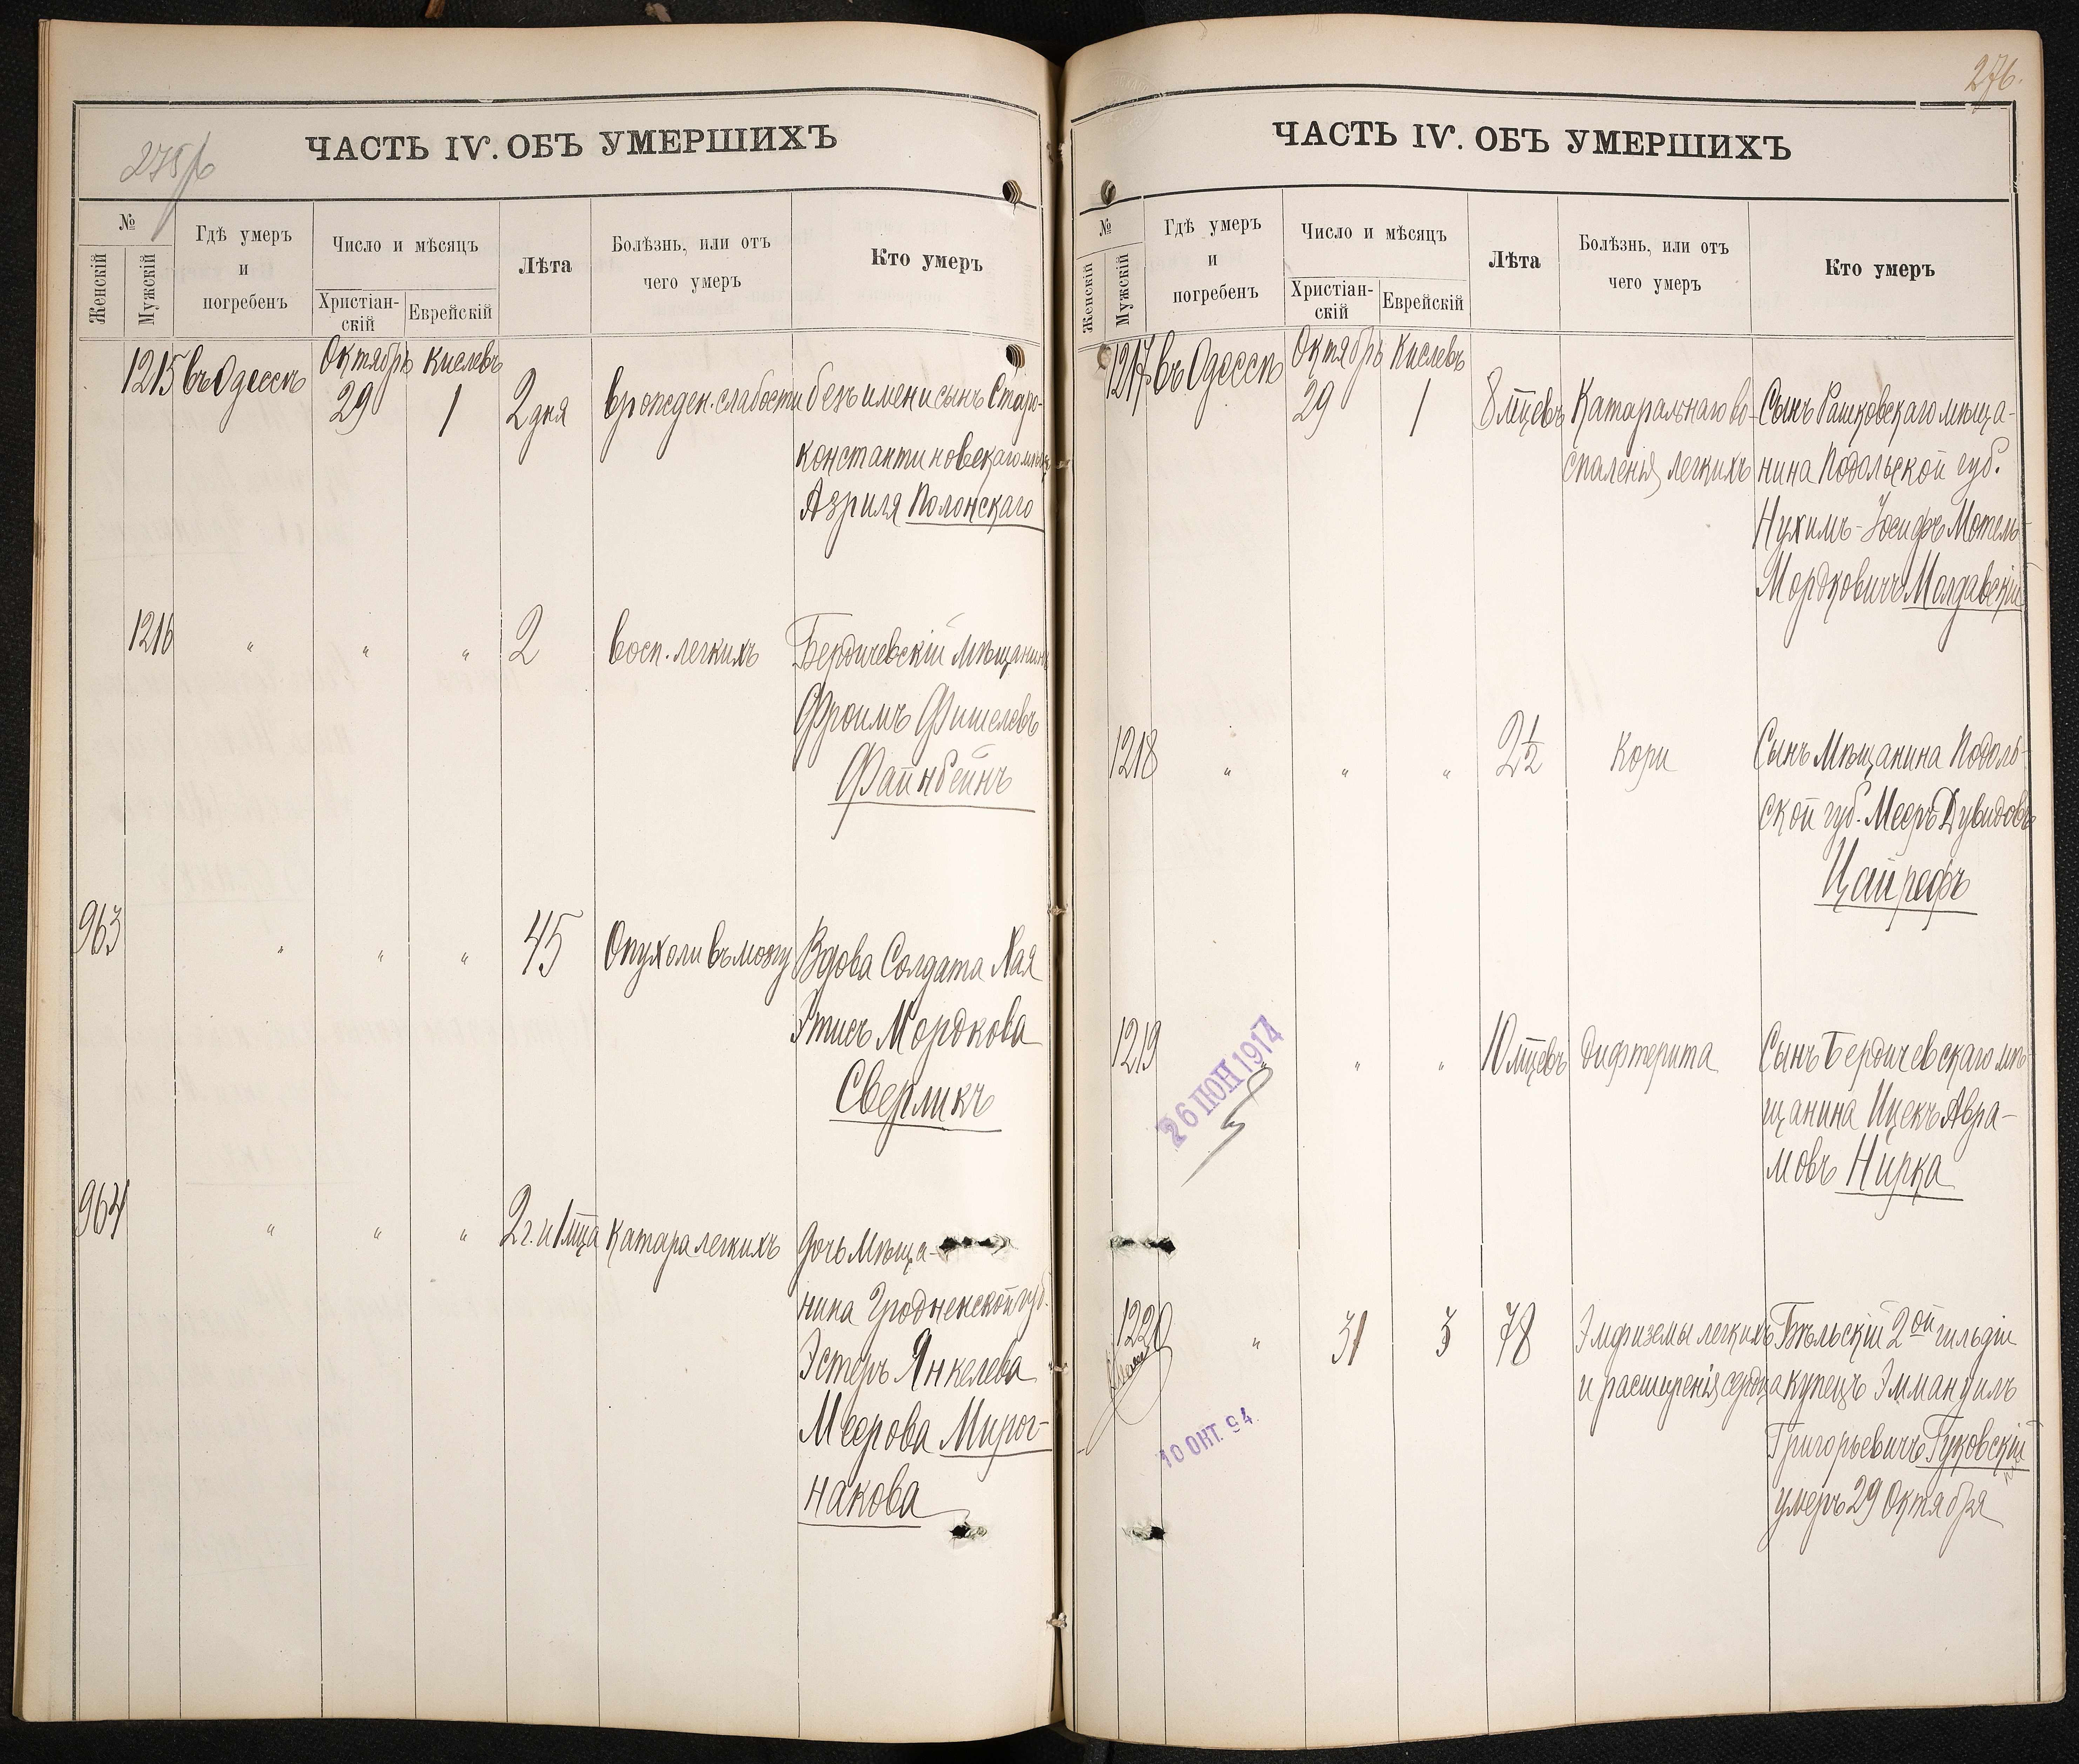 275/б
ЧАСТЬ IV. ОБЪ УМЕРШИХЪ
№
Женскій
Мужскій
Гдѣ умеръ
и
погребенъ
Число и мѣсяцъ
Христіан-
скій
Еврейскій
Лѣта
Болѣзнь, или отъ
чего умеръ
Кто умеръ
Октябрь Кислевъ
1215 въ Одессѣ 29 1 2 дня врожден. слабости безъ имени сынъ Старо-
константиновскаго мѣщ
Азриля Полонскаго
1216 " " " 2 Восп. легкихъ Бердичевскій мѣщанинъ
Фроимъ Фишелевъ
Файнбейнъ
963 " " " 45 Опухоли въ мозгу Вдова Солдата Хая
Этись Мордкова
Сверликъ
964 " " " 2 г. и 1 мѣца Катара легкихъ Дочь Мѣща-
нина Гродненской губ.
Эстеръ Янкелева
Меерова Мирог-
накова
276.
ЧАСТЬ IV. ОБЪ УМЕРШИХЪ
№
Женскій
Мужскій
Гдѣ умеръ
и
погребенъ
Число и мѣсяцъ
Христіан-
скій
Еврейскій
Лѣта
Болѣзнь, или отъ
чего умеръ
Кто умеръ
Октябрь Кислевъ
1217 въ Одессѣ 29 1 8 мцевъ Катаральнаго во- Сынъ Рашковскаго мѣща-
спаленія легкихъ нина Подольской губ.
Нухимъ-Іосифъ Мотель-
Мордковичъ Молдавскій
1218 " " " 2 1/2 Кори Сынъ Мѣщанина Подоль-
ской губ. Мееръ Дувидовъ
Цайрефъ
1219 " " " 10 мцевъ Дифтерита Сынъ Бердичевскаго мѣ-
щанина Ицекъ Авра-
мовъ Нирка
26 ІЮН 1914
1220 " 31 3 78 Эмфиземы легкихъ Бѣльскій 2ой гильдіи
и расширенія сердца купецъ Эммануилъ
Григорьевичъ Гуковскій
умеръ 29 Октября
10 ОКТ. 94.